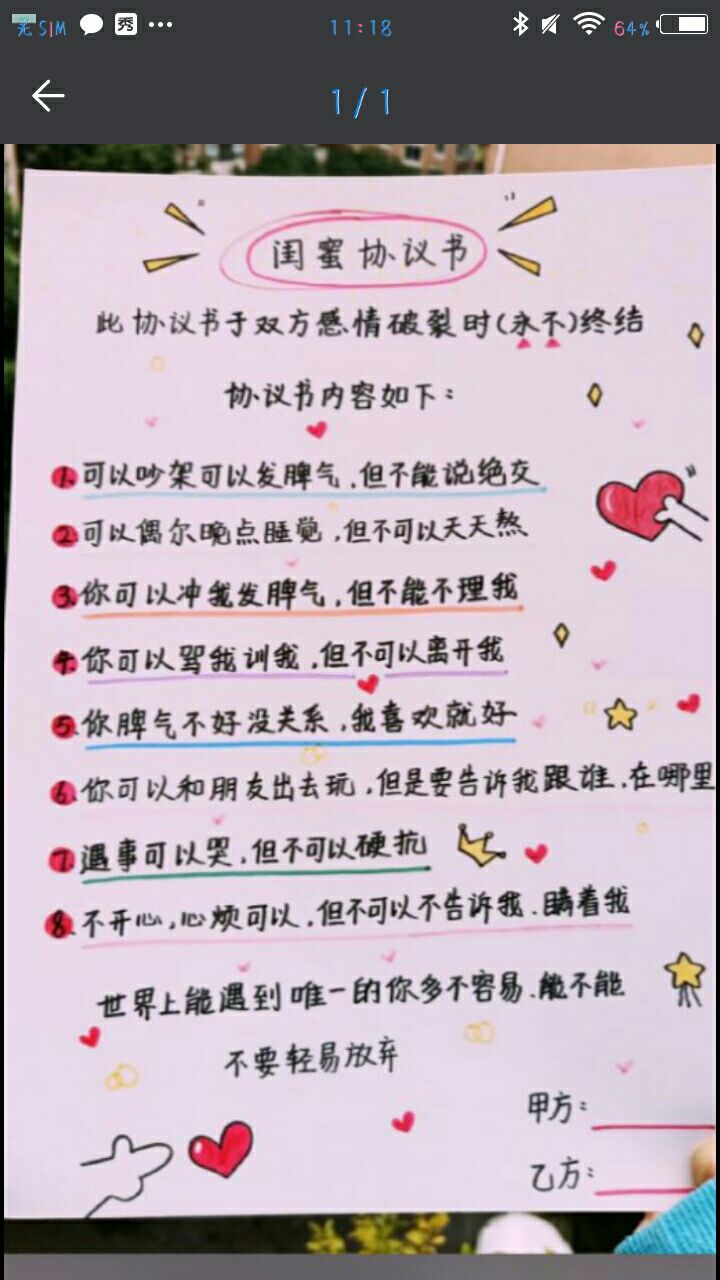 无 SIM 秀 ... 11:18 64%
1 / 1
闺蜜协议书
此协议书于双方感情破裂时(永不)终结
协议书内容如下:
1. 可以吵架可以发脾气,但不能说绝交
2. 可以偶尔晚点睡觉,但不可以天天熬
3. 你可以冲我发脾气,但不能不理我
4. 你可以骂我训我,但不可以离开我
5. 你脾气不好没关系,我喜欢就好
6. 你可以和朋友出去玩,但是要告诉我跟谁.在哪里
7. 遇事可以哭,但不可以硬抗
8. 不开心,心烦可以,但不可以不告诉我.瞒着我
世界上能遇到唯一的你多不容易.能不能
不要轻易放弃
甲方:
乙方: